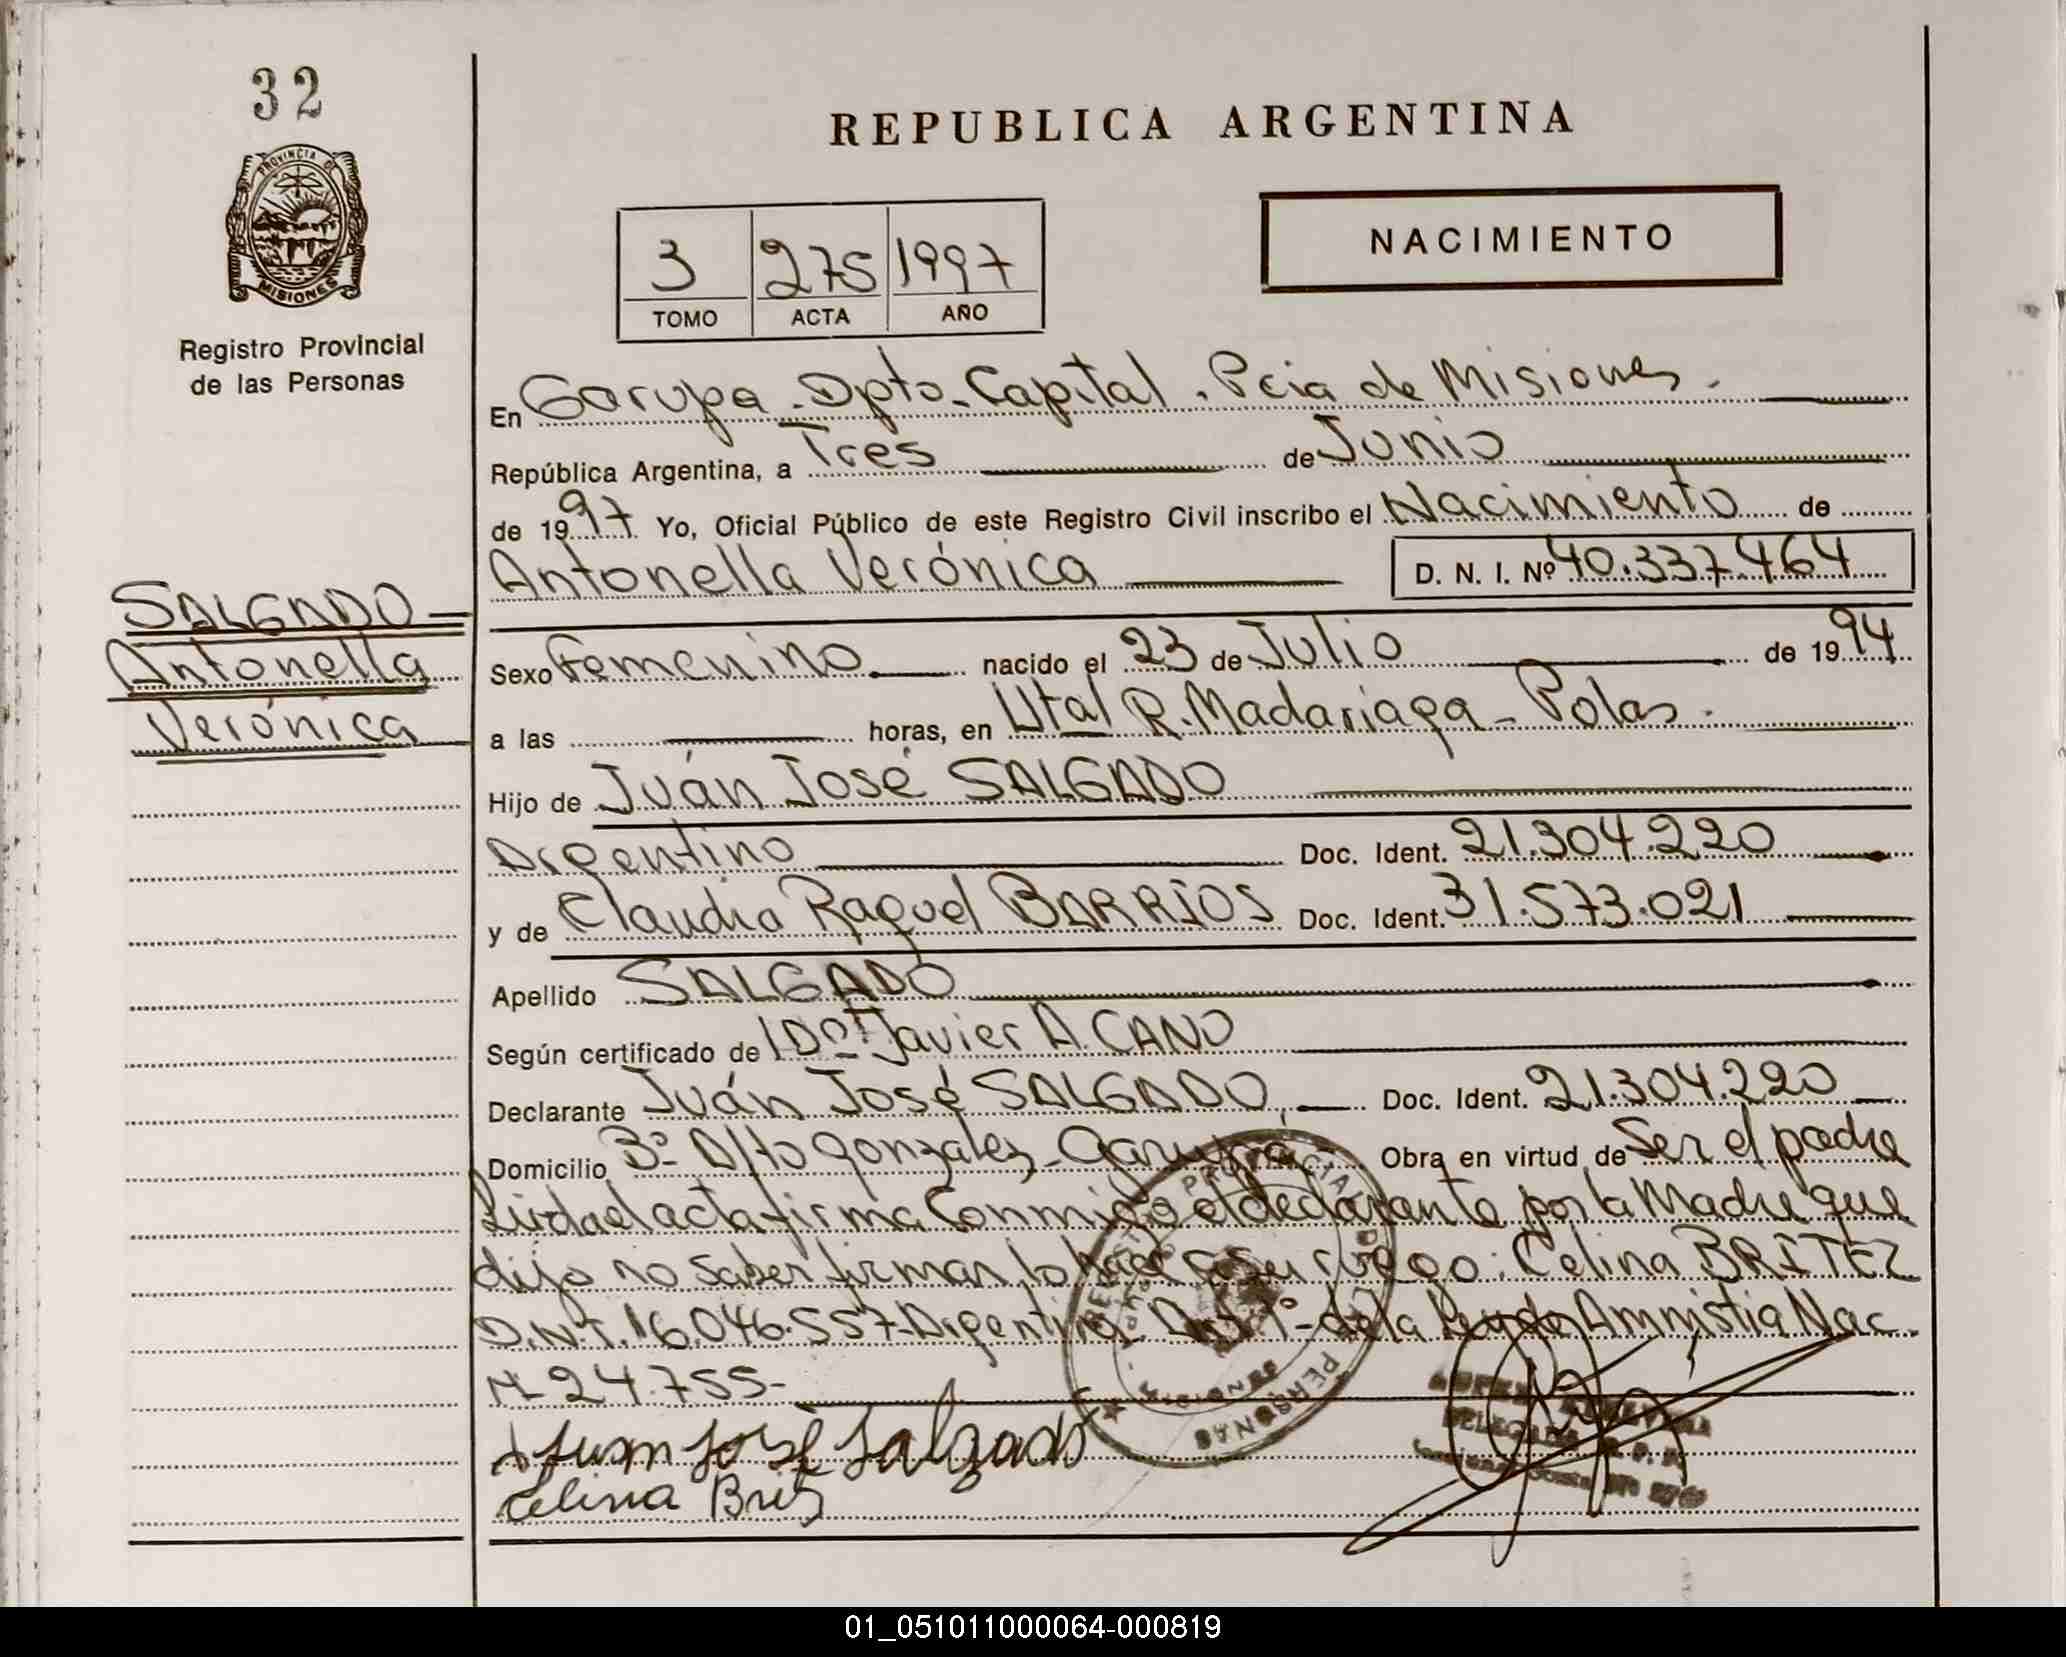 32
PROVINCIA DE
MISIONES
Registro Provincial
de las Personas
REPUBLICA ARGENTINA
NACIMIENTO
3 275 1997
TOMO ACTA AÑO
En Garupa - Dpto - Capital . Pcia de Misiones .
República Argentina, a Tres de Junio
de 1997 Yo, Oficial Público de este Registro Civil inscribo el Nacimiento de
Antonella Verónica D. N. I. Nº 40.337.464
SALGADO
Antonella
Verónica
Sexo Femenino nacido el 23 de Julio de 1994
a las horas, en Htal R. Madariaga - Pdas.
Hijo de Juán José SALGADO
Argentino Doc. Ident. 21.304.220
y de Claudia Raquel BARRIOS Doc. Ident. 31.573.021
Apellido SALGADO
Según certificado de Javier A. CANO
Declarante Juán José SALGADO, Doc. Ident. 21.304.220
Domicilio Bº Alto Gonzalez - Garupá Obra en virtud de Ser el padre
Leida el acta firma Conmigo el declarante por la Madre que
dijo no saber firmar lo hace a su ruego: Celina BRITEZ
D.N.I. 16.046.557 - Argentina - de la Ley de Amnistia Nac.
Nº 24.755-
Juan José Salgado
Celina Brit
REGISTRO PROVINCIAL DE
PERSONAS
MISIONES
DELEGADA
01_051011000064-000819